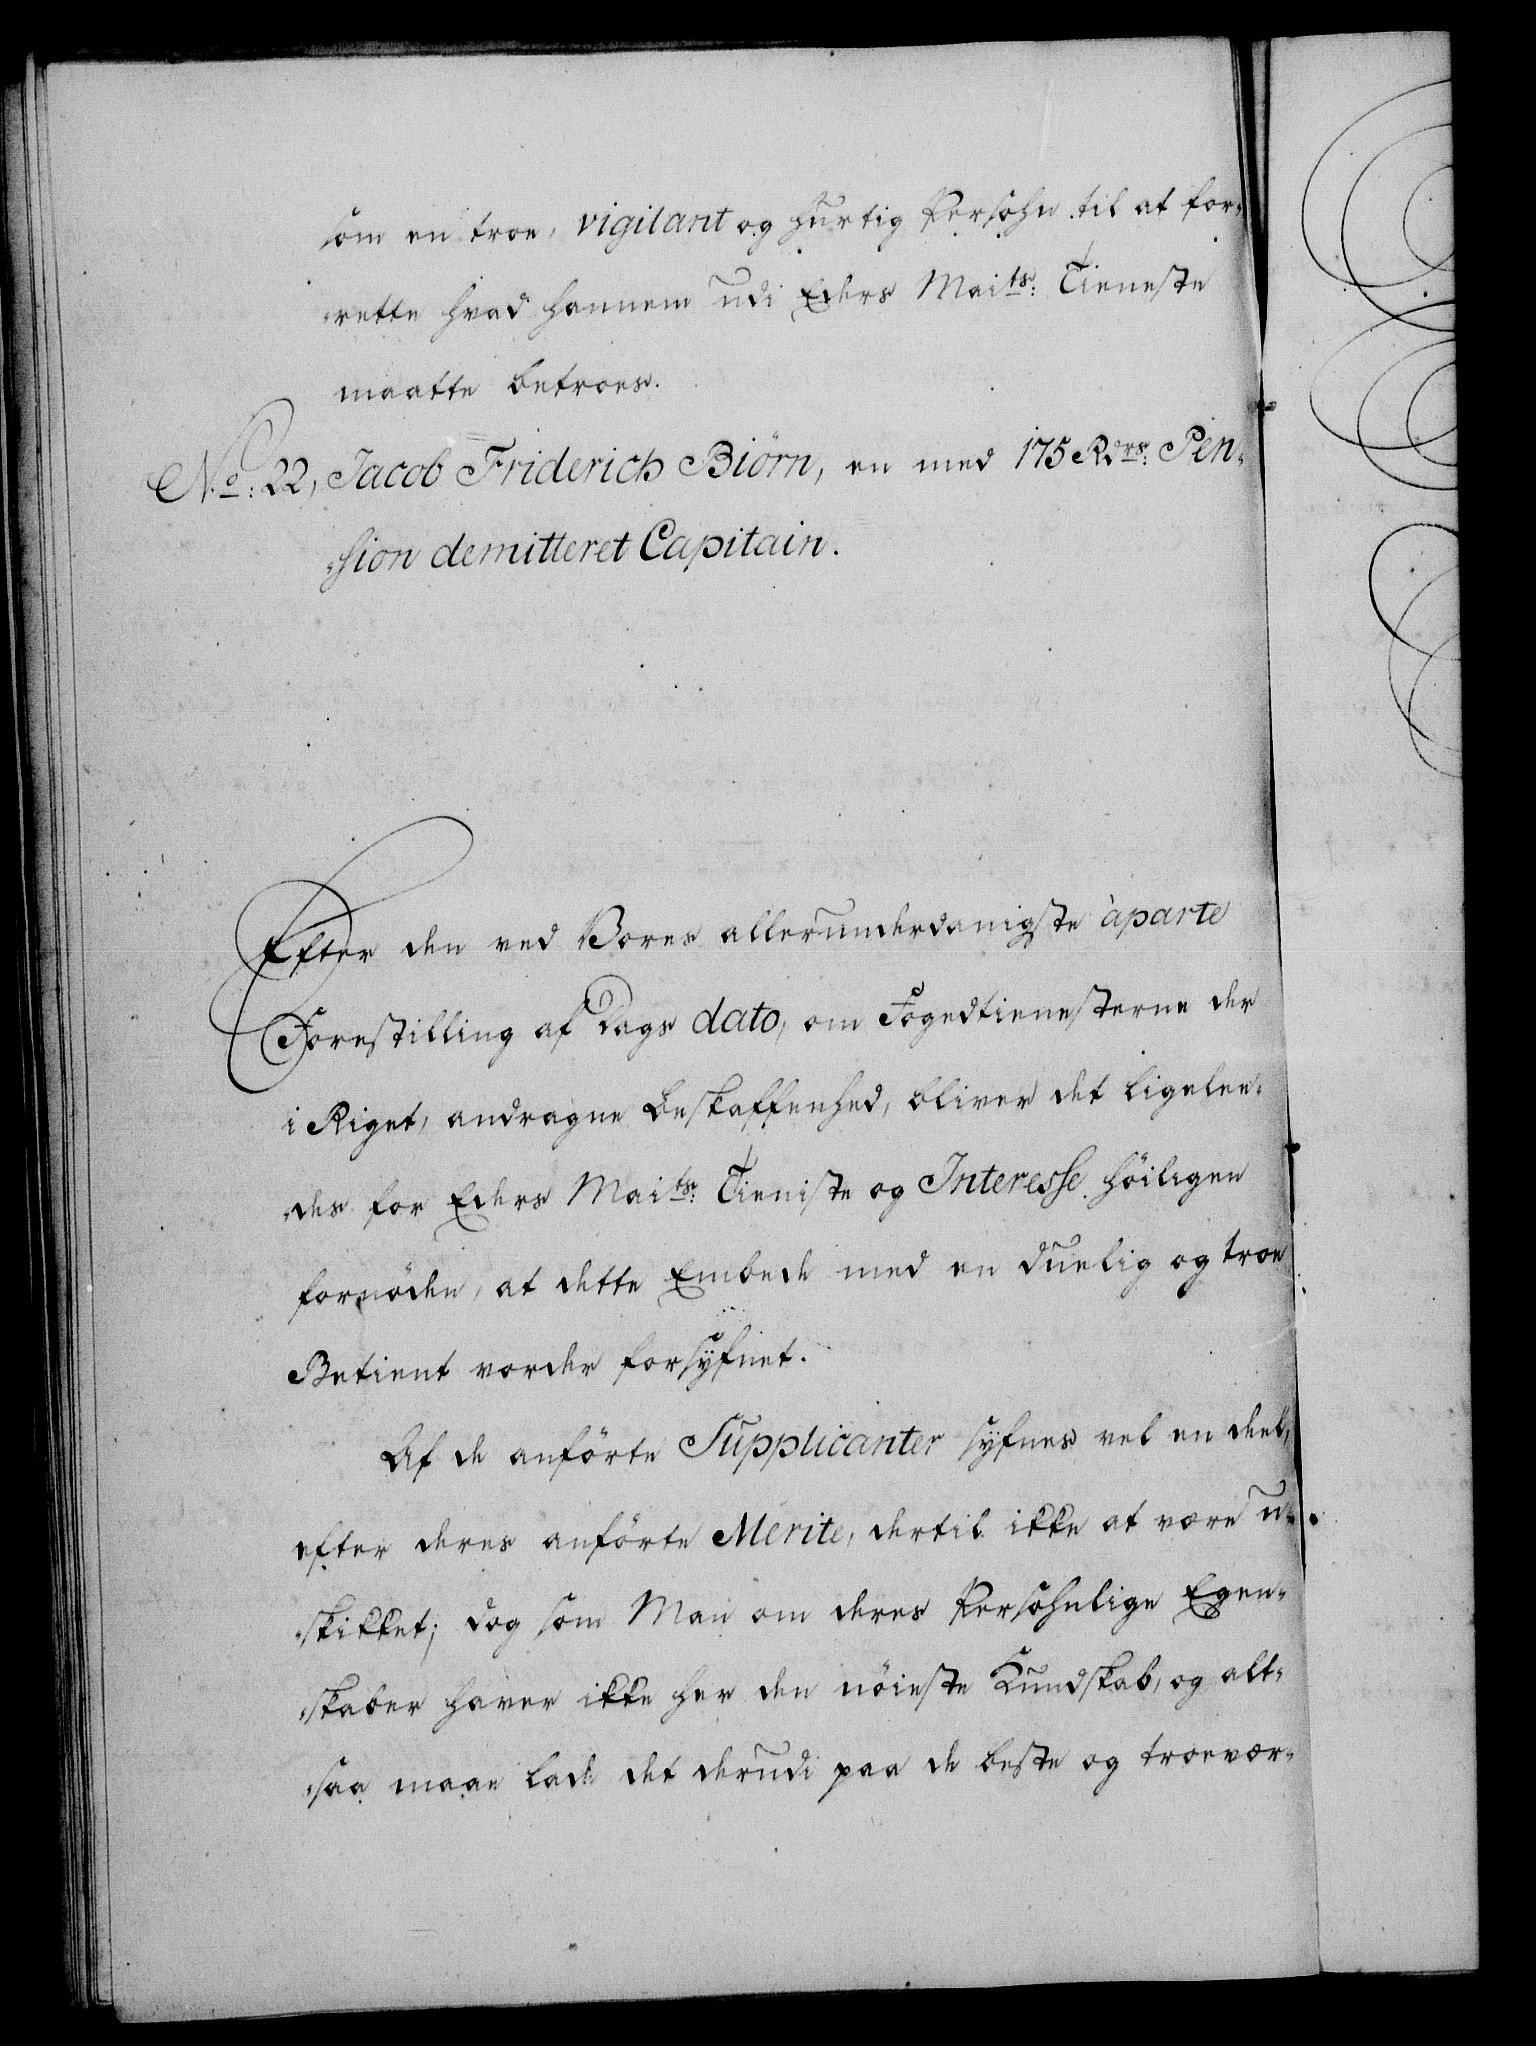 som en troe, vigilant og hurtig Persohn til at for-
rette hvad hannem udi Eders Maits: Tieneste
maatte betroes.
No: 22, Jacob Friderich Biörn, en med 175 Rdrs: Pen-
sion demitteret Capitain.
Efter den ved Vores allerunderdanigste àparte
Forestilling af Dags dato, om Fogedtienesterne der
i Riget, andragne Beskaffenhed, bliver det ligelee-
des for Eders Maits: Tieniste og Interesse höiligen
fornöden, at dette Embede med en duelig og troe
Betient vorder forsÿfnet.
Af de anförte Supplicanter sÿfnes vel en deel,
efter deres anförte Merite, dertil ikke at være u-
skikket; dog som Man om deres Persohnlige Egen-
skaber haver ikke her den nöieste Kundskab, og alt-
saa maae lade det derudi paa de beste og troevær-